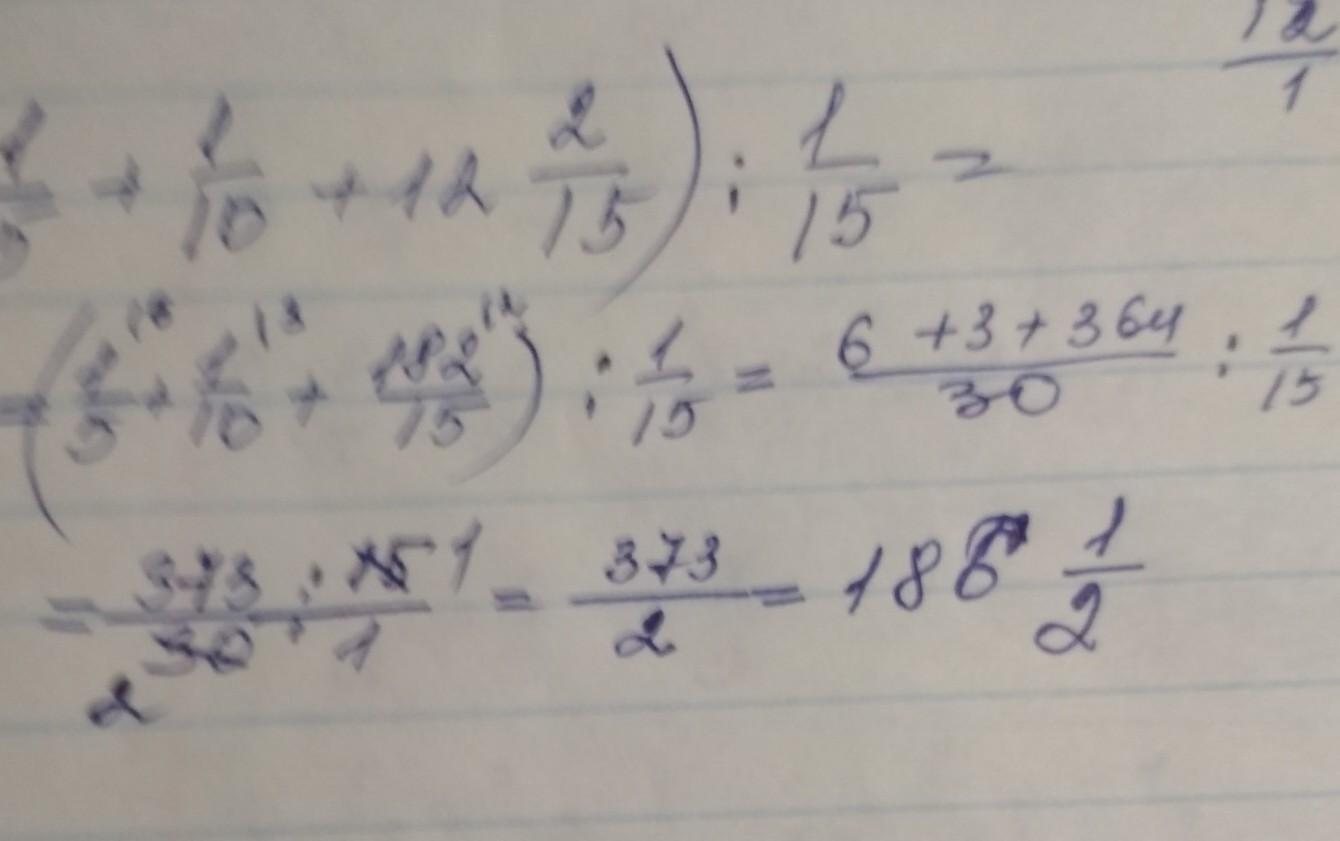 12/1
1/5 + 1/10 + 12 2/15) : 1/15 =
= (1/5 + 1/10 + 182/15) : 1/15 = 6 + 3 + 364/30 : 1/15
= 373 · 15 1/30 · 1 2 = 373/2 = 186 1/2